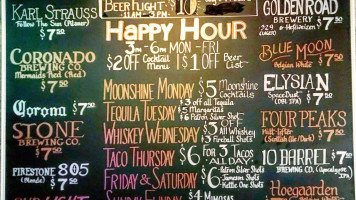 KARL STRAUSS
Follow The Sun (Pilsner)
$7.50
CORONADO
BREWING CO.
Mermaids Red (Red)
$7.50
Corona $7.50
STONE
BREWING CO.
$7.50
FIRESTONE 805
(Blonde) $7.50
BEER FLIGHT - $10
11AM - 3PM
HAPPY HOUR
3PM - 6PM MON - FRI
$2 OFF Cocktail Menu | $1 OFF Beer List
MOONSHINE MONDAY $5 Moonshine Cocktails
$3 off all Tequila
TEQUILA TUESDAY $5 Margaritas
$6 Patron Silver Shots
WHISKEY WEDNESDAY $3 All Whiskey
Fireball Shots
TACO THURSDAY $6 FOR 3 TACOS
ALL DAY!
FRIDAY & SATURDAY $6 Patron Silver Shots
$6 Jameson Shots
$6 Kettle One Shots
SUNDAY SUNDAY $4 MIMOSAS
GOLDEN ROAD
BREWERY
329
(LAGER) Hefeweizen
$7.50
BLUE MOON
Belgian White $7.50
ELYSIAN
SpaceDust
(09L IPA) $7.50
FOUR PEAKS
Kilt-Lifter
(Scottish Ale/Dark) $7.50
10 BARREL $7.50
BREWING CO. (Apocalypse IPA)
Hoegaarden